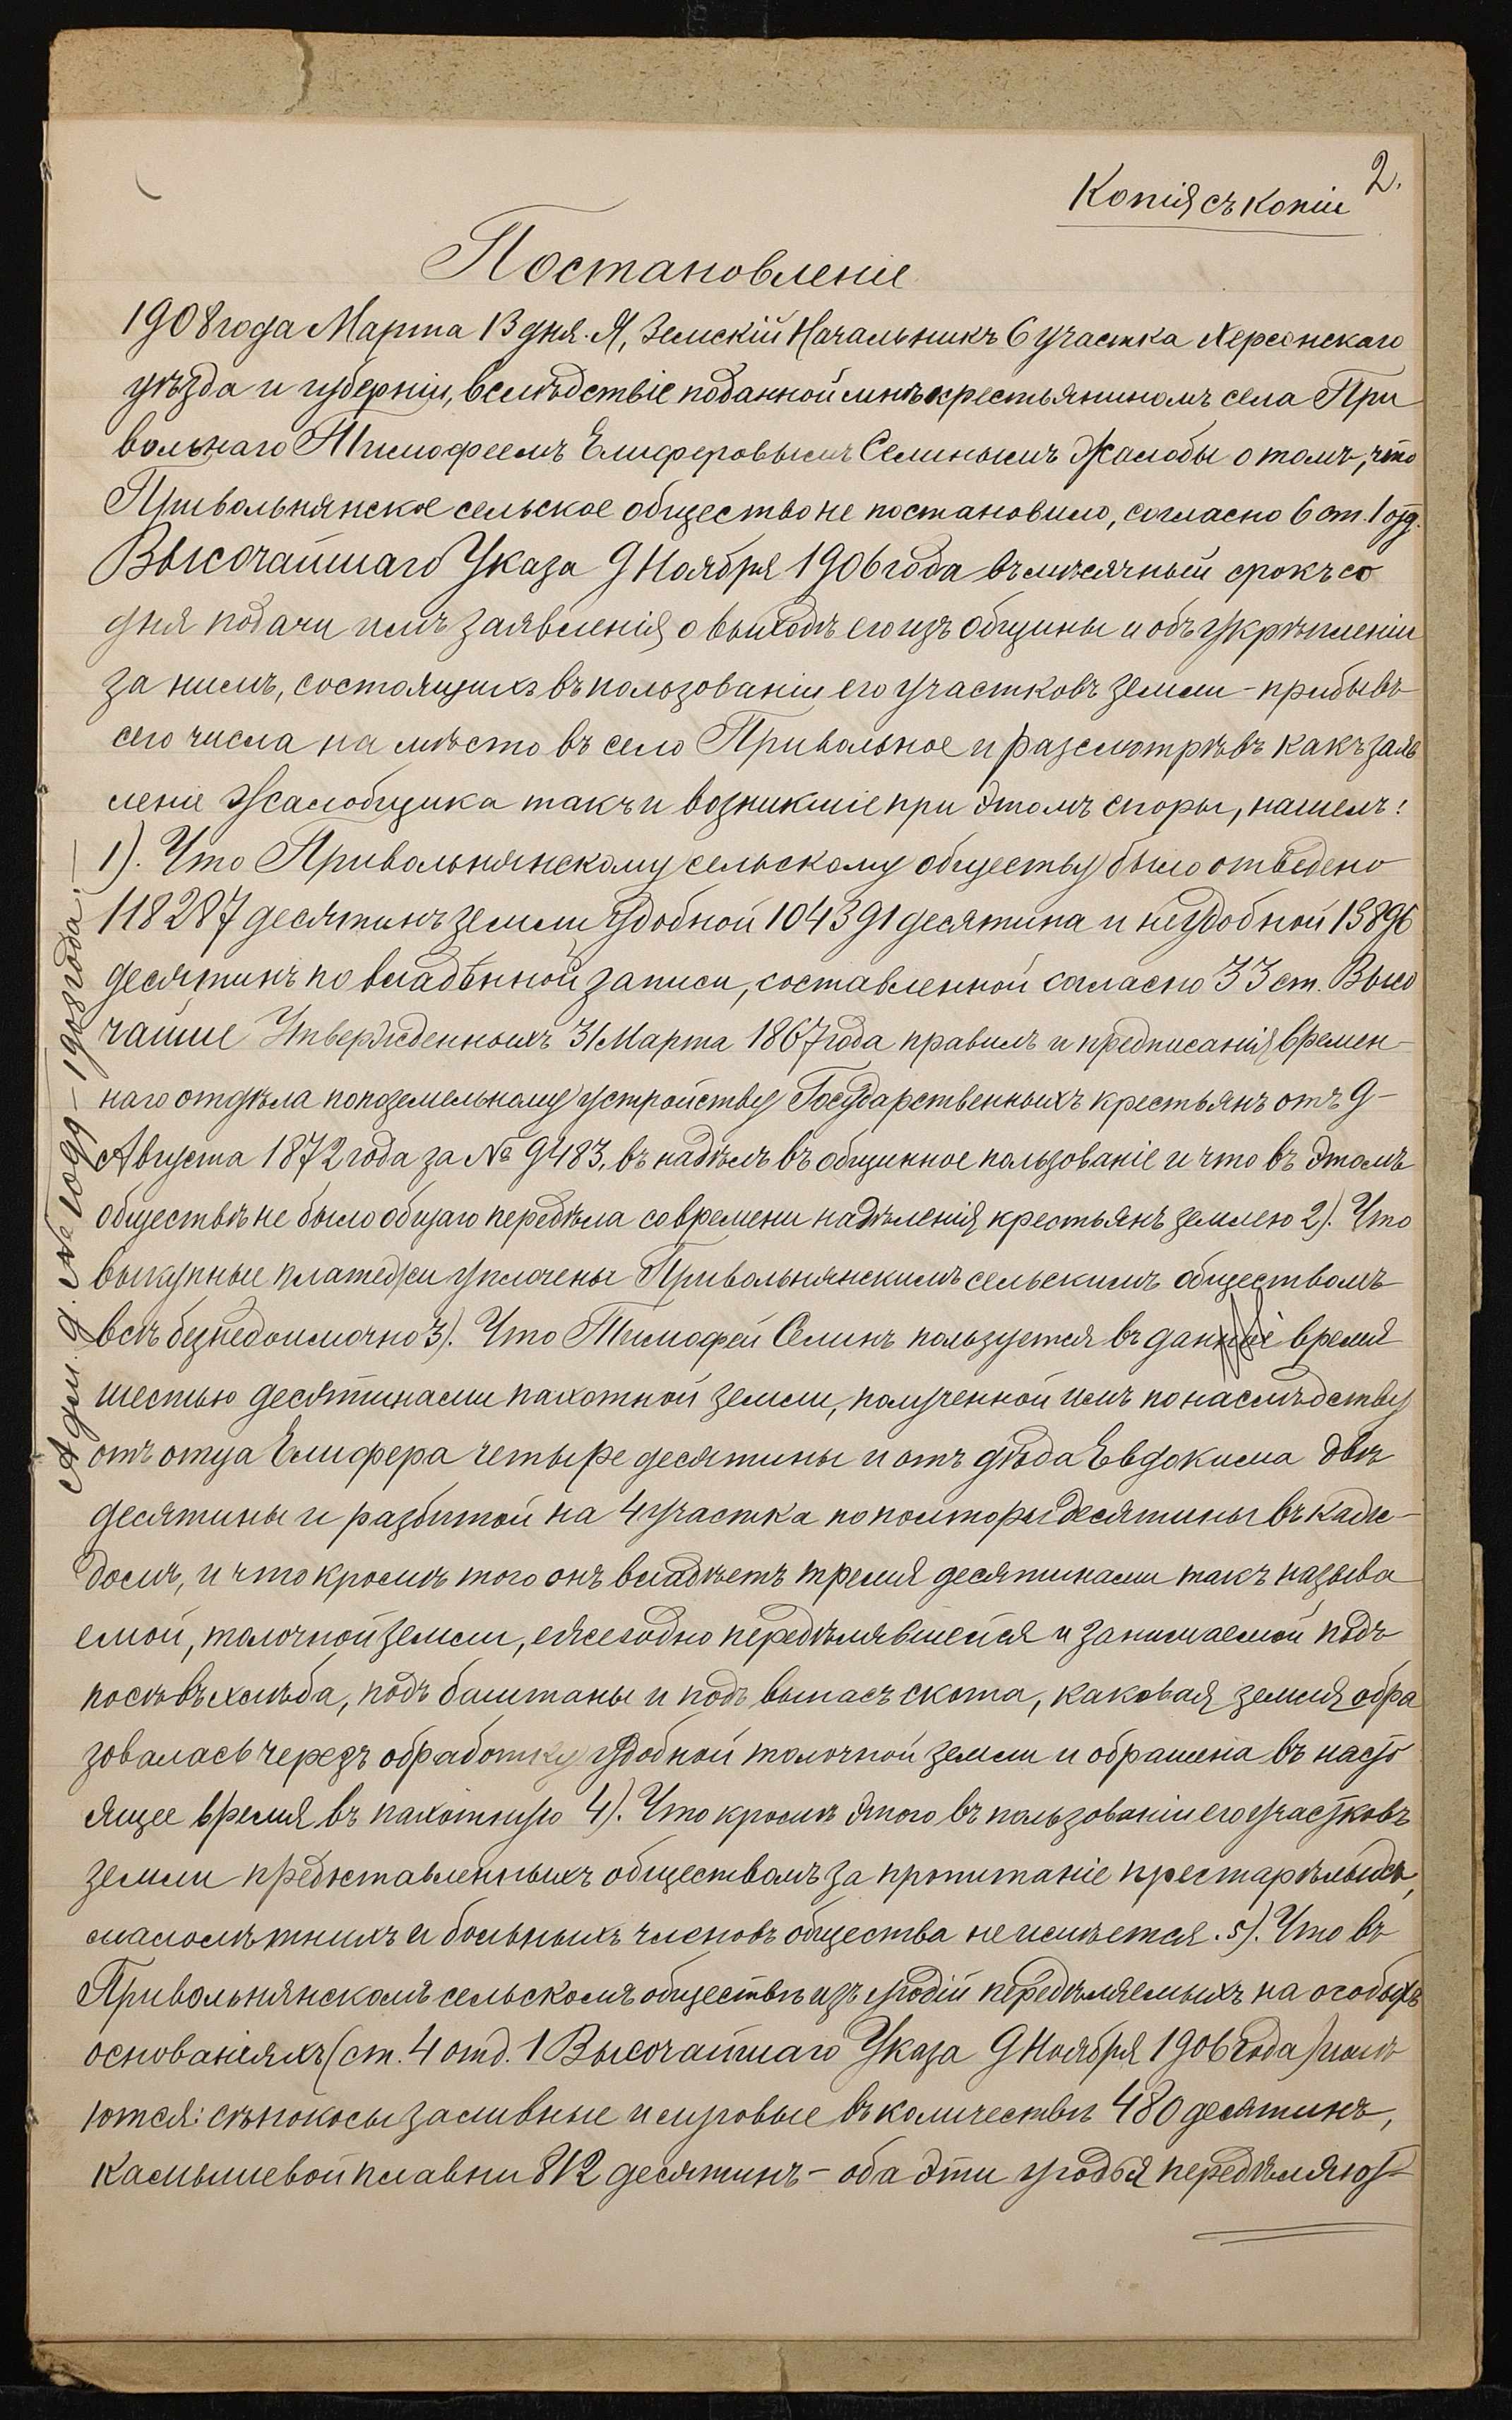 2.
Копія съ копіи
Постановленіе
1908 года Марта 13 дня. Я, Земскій Начальникъ 6 участка Херсонскаго
уѣзда и губерніи, вслѣдствіе поданной мнѣ крестьяниномъ села При
вольнаго Тимофеемъ Елиферовымъ Селинымъ жалобы о томъ, что
Привольнянское сельское общество не постановило, согласно 6 ст. 1 отд.
Высочайшаго Указа 9 Ноября 1906 года въ мѣсячный срокъ со
дня подачи имъ заявленія о выходѣ его изъ общины и объ укрѣпленіи
за нимъ, состоящихъ въ пользованіи его участковъ земли - прибывъ
сего числа на мѣсто въ село Привольное и разсмотрѣвъ какъ заяв
леніе жалобщика такъ и возникшіе при этомъ споры, нашелъ:
1). Что Привольнянскому сельскому обществу было отведено
118287 десятинъ земли удобной 104391 десятина и неудобной 13896
десятинъ по владѣнной записи, составленной согласно 33 ст. Высо
чайше Утвержденныхъ 31 Марта 1867 года правилъ и предписанія времен-
наго отдѣла по поземельному устройству Государственныхъ крестьянъ отъ 9-
Августа 1872 года за № 9483, въ надѣлъ въ общинное пользованіе и что въ этомъ
обществѣ не было общаго передѣла со времени надѣленія крестьянъ землею 2). Что
выкупные платежи уплочены Привольнянскимъ сельскимъ обществомъ
всѣ безнедоимочно 3). Что Тимофей Селинъ пользуется въ данное время
шестью десятинами пахотной земли, полученной имъ по наслѣдству
отъ отца Елифера четыре десятины и отъ дѣда Евдокима двѣ
десятины и разбитой на 4 участка по полторы десятины въ каж-
домъ, и что кромѣ того онъ владѣетъ тремя десятинами такъ называ
емой, толочной земли, ежегодно передѣлявшейся и занимаемой подъ
посѣвъ хлѣба, подъ баштаны и подъ выпасъ скота, каковая земля обра
зовалась чрезъ обработку удобной толочной земли и обращена въ насто
ящее время въ пахотную 4). Что кромѣ этого въ пользованіи его участковъ
земли предоставленныхъ обществомъ за пропитаніе престарѣлыхъ,
малолѣтнихъ и больныхъ членовъ общества не имѣется. 5). Что въ
Привольнянскомъ сельскомъ обществѣ изъ угодій передѣляемыхъ на особыхъ
основаніяхъ (ст. 4 отд. 1 Высочайшаго Указа 9 Ноября 1906 года) имѣ
ются: сѣнокосы заливные и луговые въ количествѣ 480 десятинъ,
камышевой плавни 812 десятинъ - оба эти угодья передѣляют-
Адм. д. № 1099 - 1908 года. -